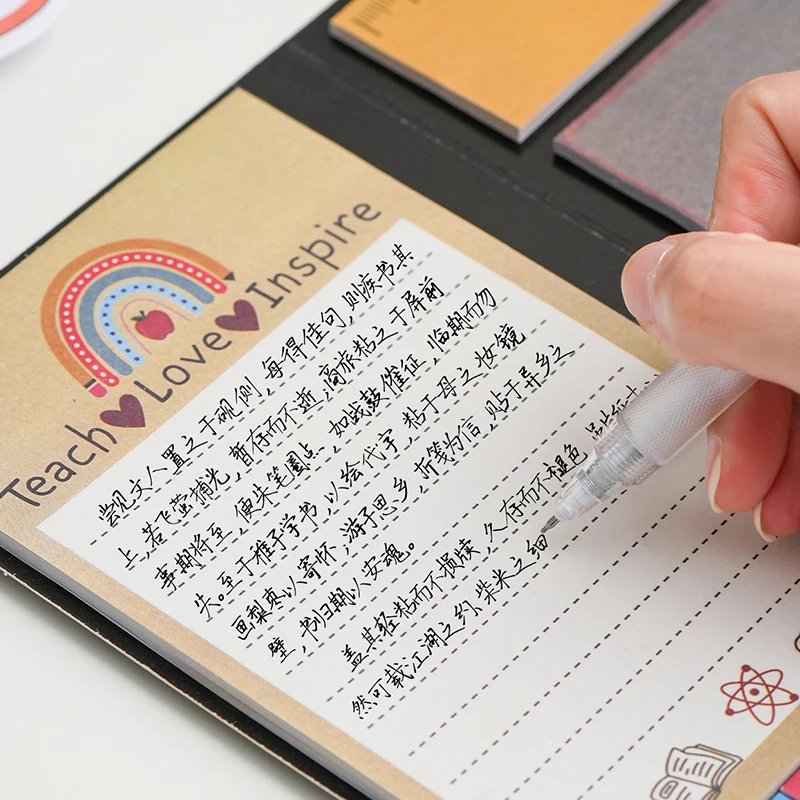 Teach Love Inspire
尝见文人置之于砚侧,每得佳句,则疾书其
上,若飞萤捕光,暂存而不逝,商旅粘之于屏前
事期将至,便朱笔圈点,如战鼓催征,临期而勿
失。至于稚子学书,以绘代字,粘于母之妆镜
画梨枣以寄怀,游子思乡,折笺为信,贴于异乡之
壁,书归期以安魂。
盖其轻粘而不损牍,久存而不褪色,虽
然可载江湖之约,柴米之细